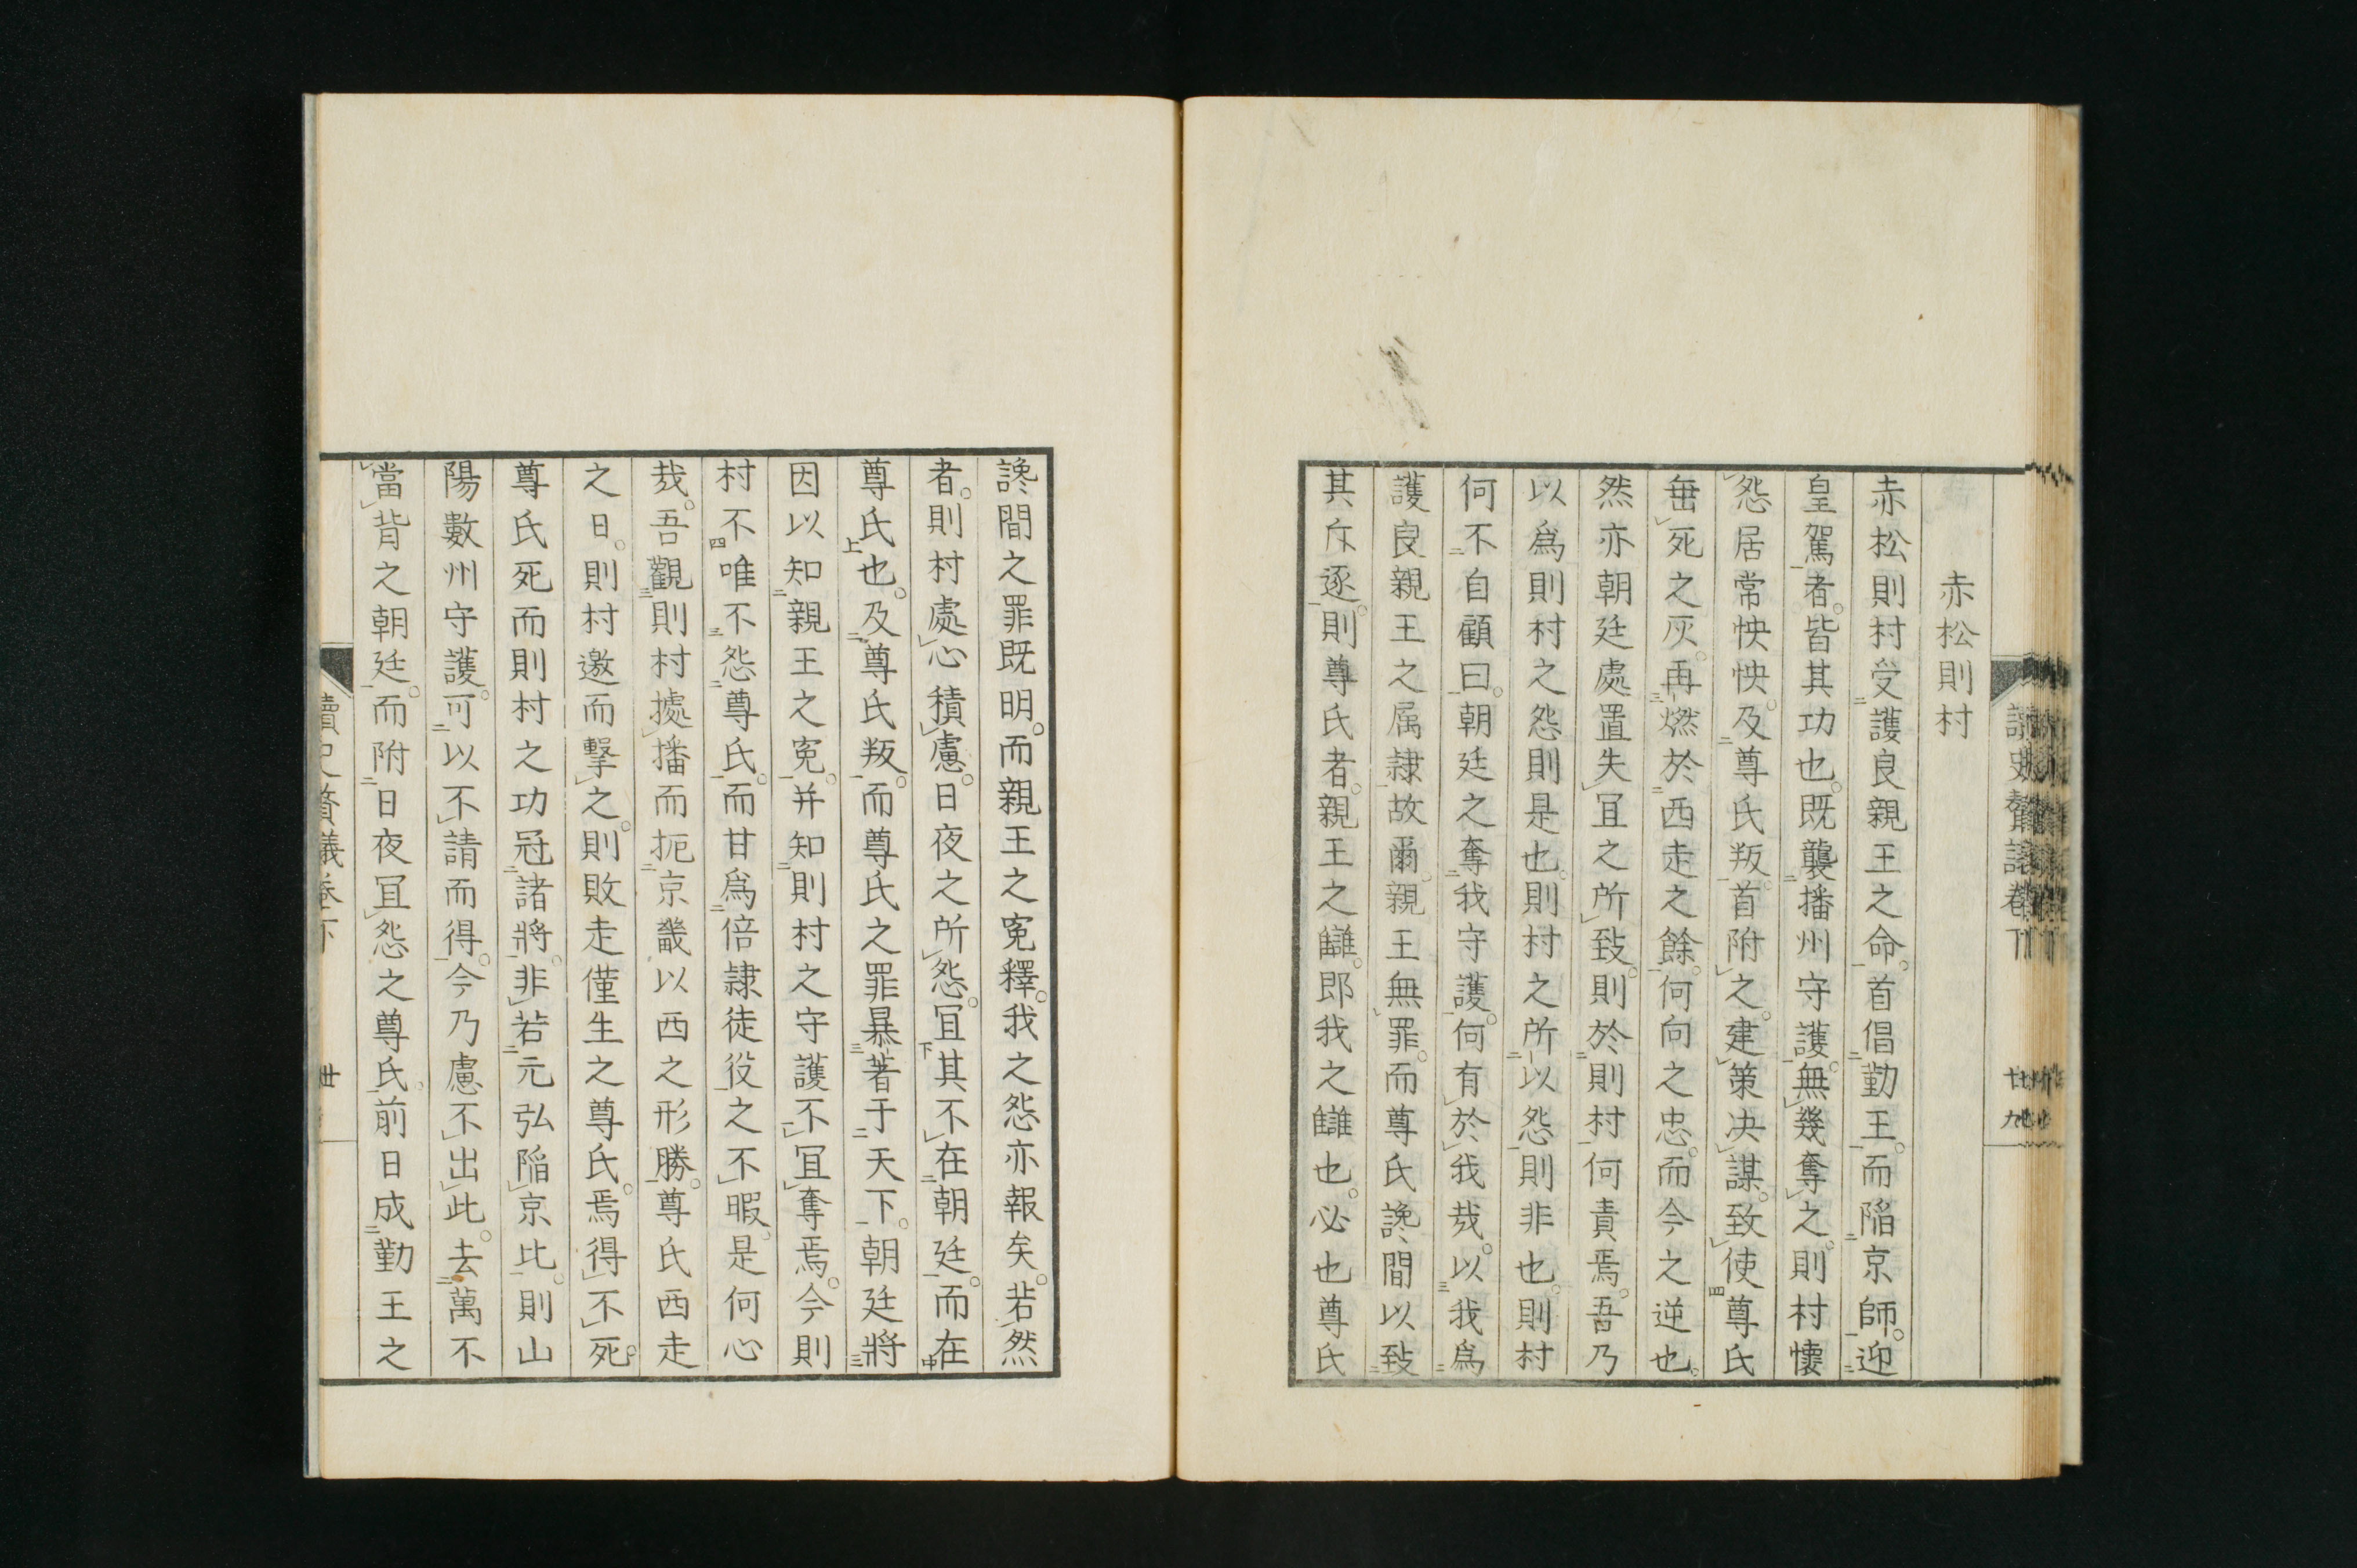 赤松則村
赤松則村受護良親王之命。首倡勤王。而陷京師。迎
皇駕者。皆其功也。既襲播州守護。無幾奪之。則村懷
怨居常怏怏。及尊氏叛。首附之。建策决謀。致使尊氏
垂死之灰。再燃於西走之餘。何向之忠。而今之逆也。
然亦朝廷處置失冝之所致。則於則村何責焉。吾乃
以爲則村之怨則是也。則村之所以怨則非也。則村
何不自顧曰。朝廷之奪我守護。何有於我哉。以我爲
護良親王之属隷故爾。親王無罪。而尊氏讒間以致
其斥逐。則尊氏者。親王之讎。即我之讎也。必也尊氏
讒間之罪既明。而親王之寃釋。我之怨亦報矣。若然
者。則村處心積慮。日夜之所怨。冝其不在朝廷。而在
尊氏也。及尊氏叛。而尊氏之罪暴著于天下。朝廷將
因以知親王之寃。并知則村之守護不冝奪焉。今則
村不唯不怨尊氏。而甘爲倍隷徒役之不暇。是何心
哉。吾觀則村據播而扼京畿以西之形勝。尊氏西走
之日。則村邀而擊之。則敗走僅生之尊氏。焉得不死。
尊氏死而則村之功冠諸將。非若元弘陷京比。則山
陽數州守護。可以不請而得。今乃慮不出此。去萬不
當背之朝廷。而附日夜冝怨之尊氏。前日成勤王之
讀史贅議卷下
廿九
讀史贅議卷下
卅